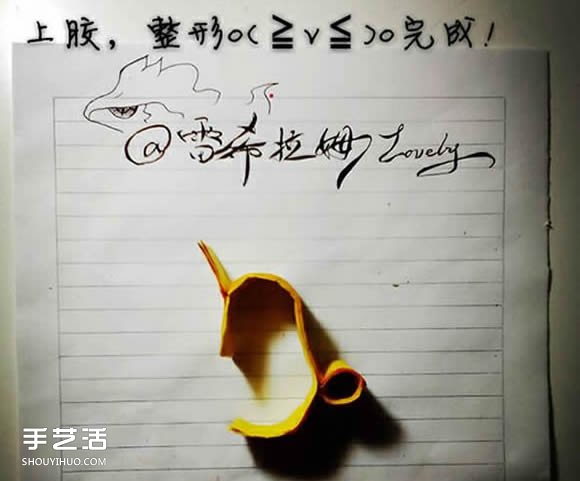 上胶，整形o(≧v≦)o完成！
@雷希拉姆Lovely
手艺活
SHOUYIHUO.COM